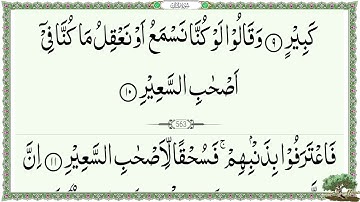 كَبِيْرٍ ۹ وَقَالُوْا لَوْ كُنَّا نَسْمَعُ اَوْ نَعْقِلُ مَا كُنَّا فِيْۤ
اَصْحٰبِ السَّعِيْرِ ۱۰
563
فَاعْتَرَفُوْا بِذَنْۢبِهِمْ ۚ فَسُحْقًا لِّاَصْحٰبِ السَّعِيْرِ ۱۱ اِنَّ